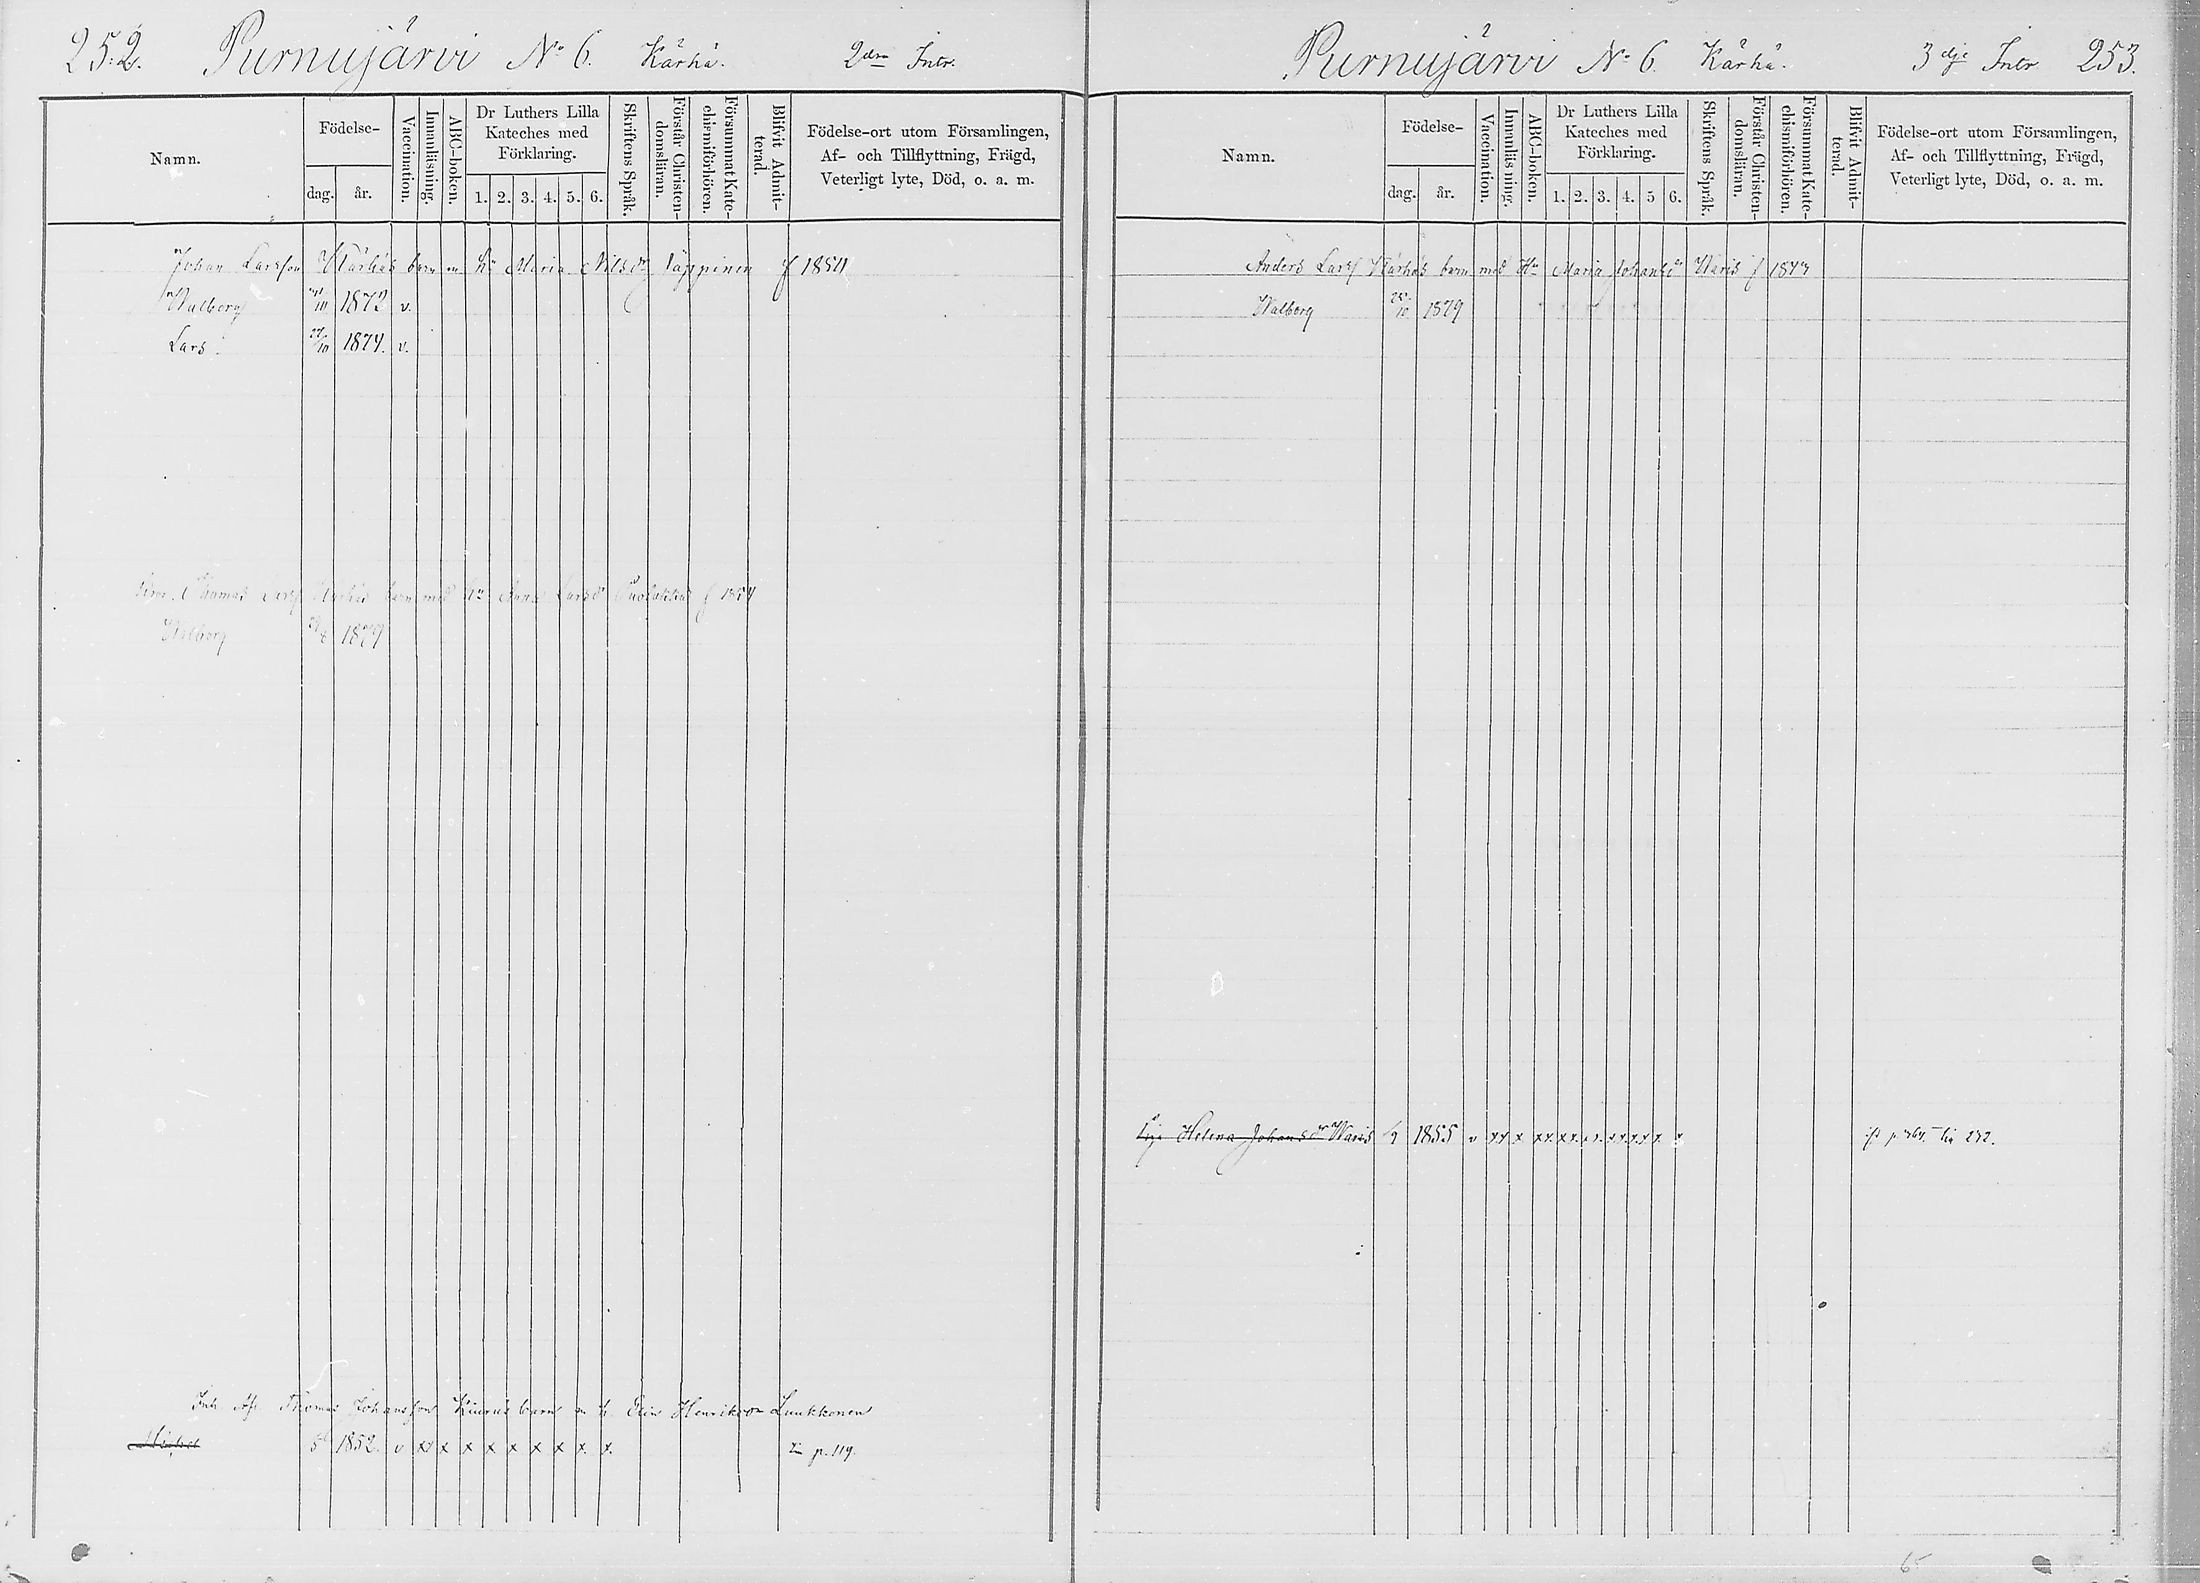 252. Purnujärvi No 6. Kärhä. 2dra Intr.
Namn.
Födelse-
dag. år.
Vaccination.
Innanläsning.
ABC-boken.
Dr Luthers Lilla
Kateches med
Förklaring.
1. 2. 3. 4. 5. 6.
Skriftens Språk.
Förstår Christen-
domsläran.
Försummat Kate-
chismiförhören.
Blifvit Admit-
terad.
Födelse-ort utom Församlingen,
Af- och Tillflyttning, Frägd,
Veterligt lyte, Död, o. a. m.
Johan Larsson Kärhäs barn m hu Maria Nilsdr Jäppinen f 1854
Walborg /10 1872 v.
Lars. /10 1874. v.
Thomas Larss Kärhäs barn med hu Anna Larsd f 1854
Walborg 1879
Inh Thomas Johansson Kiurus barn m h. Elin Henriksdr Luukkonen
Michel 5/ 1852. v xx x x x x x x x x. Tr p. 119.
Purnujärvi No 6. Kärhä. 3dje Intr 253.
Namn.
Födelse-
dag. år.
Vaccination.
Innanläsning.
ABC-boken.
Dr Luthers Lilla
Kateches med
Förklaring.
1. 2. 3. 4. 5 6.
Skriftens Språk.
Förstår Christen-
domsläran.
Försummat Kate-
chismiförhören.
Blifvit Admit-
terad.
Födelse-ort utom Församlingen,
Af- och Tillflyttning, Frägd,
Veterligt lyte, Död, o. a. m.
Anders Larss Kärhäs barn med Hu Maria Johansdr Waris f
Walborg 25/10 1879
Helena Johansdr Waris 1855 v xx x
65